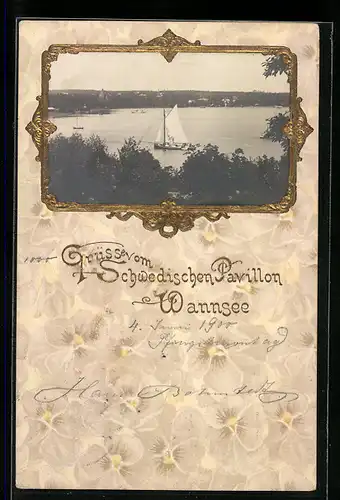 Grüsse vom
Schwedischen Pavillon
Wannsee
4. Juni 1900
Pfingstmontag